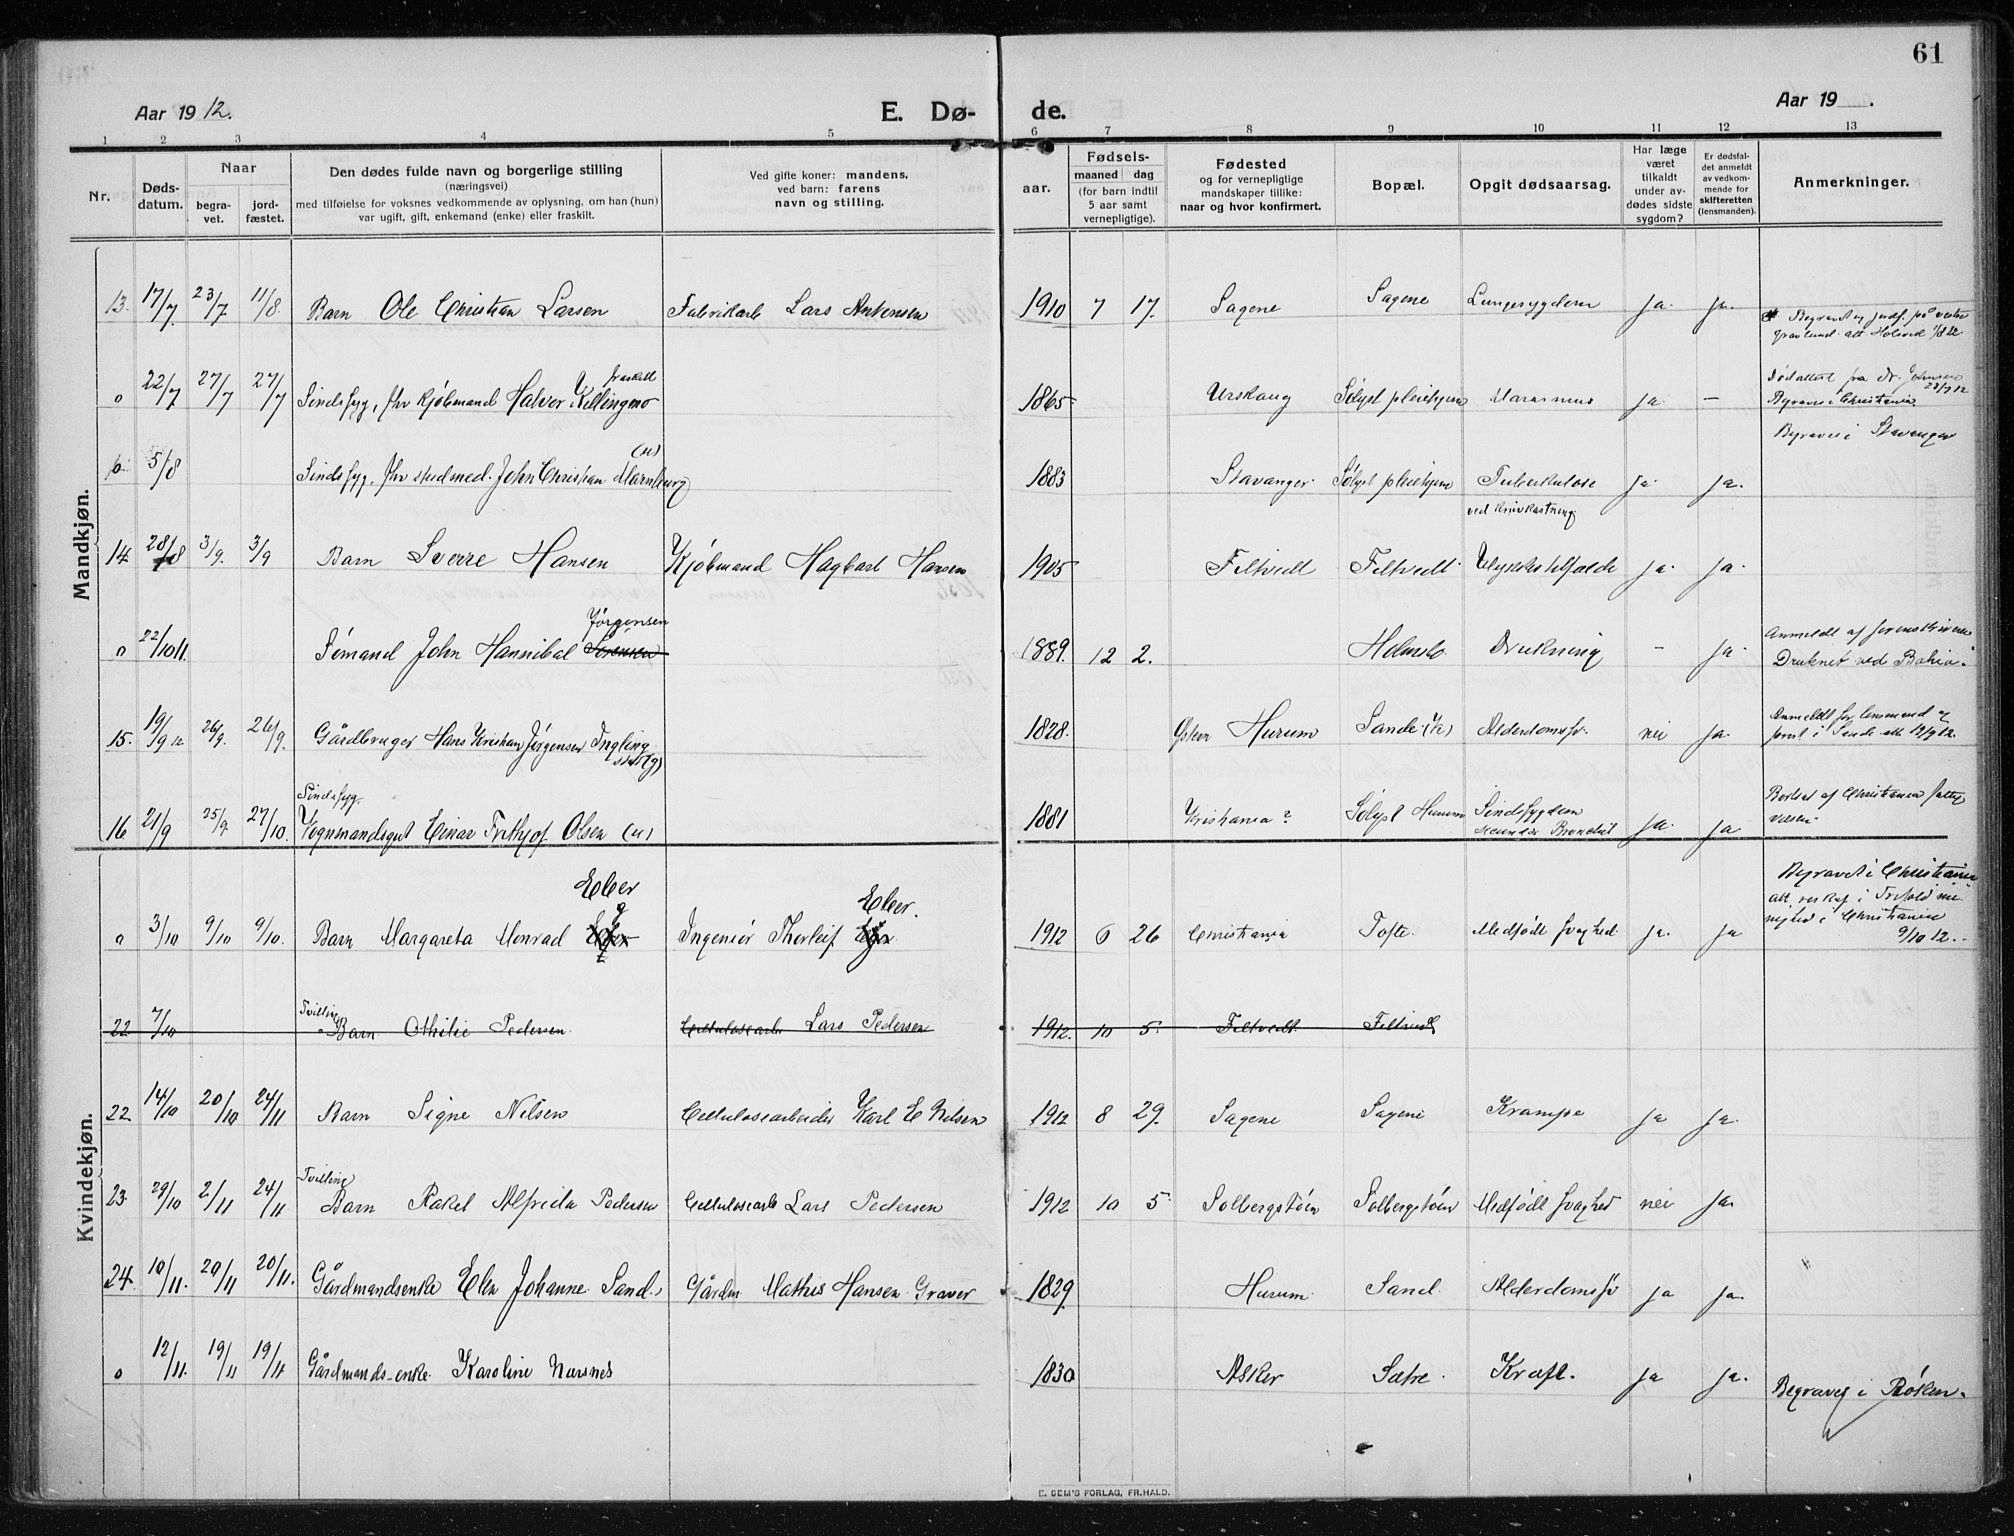 61
Aar 1912.
E. Dø-
de.
Aar 19 .
1 2 3 4 5 6 7 8 9 10 11 12 13
Nr.
Døds-
datum.
Naar
begra-
vet.
jord-
fæstet.
Den dødes fulde navn og borgerlige stilling
(næringsvei)
med tilføielse for voksnes vedkommende av oplysning, om han (hun)
var ugift, gift, enkemand (enke) eller fraskilt.
Ved gifte koner: mandens,
ved barn: farens
navn og stilling.
aar.
Fødsels-
maaned dag
(for barn indtil
5 aar samt
vernepligtige).
Fødested
og for vernepligtige
mandskaper tillike:
naar og hvor konfirmert.
Bopæl.
Opgit dødsaarsag.
Har læge
været
tilkaldt
under av-
dødes sidste
sygdom?
Er dødsfal-
det anmeldt
av vedkom-
mende for
skifteretten
(lensmanden).
Anmerkninger.
Mandkjøn.
13. 17/7 23/7 11/8. Barn Ole Christian Larsen Fabrikarb Lars Antensen 1910 7 17. Sagene Sagene Lungesygdom ja. ja.
Begravet og jordf. på vestre
gravlund att. Holsvid 1/8 12
o 22/7 27/7 27/7 Sindssyg, fhv kjøbmand Halvor Killingmo fraskilt 1865 Urskoug Sølyst pleiehjem Marasmus ja. —
Dødsattest fra dr. Johnsen
23/7 12
Begraves i Christiania.
o 5/8 Sindssyg, fhv stud med. John Christian Marnburg (u) 1883 Stavanger. Sølyst pleiehjem Tuberkulose ja. ja.
ved krivkastning
Begraves i Stavanger
14. 28/8 3/9. 3/9 Barn Sverre Hansen Kjøbmand Hagbart Hansen 1905 Filtvedt Filtvedt. Ulykkestilfælde ja. ja.
o 22/10 11. Sømand John Hannibal Sørensen Jörgensen 1889. 12 2. Holmsbo Drukning - ja.
Anmeldt af sorenskriveren
Druknet ved Bahia.
15. 19/9 12 26/9. 26/9. Gårdbruger Hans Kristian Jørgensen Ingling
stad (g) 1828. Hurum Sande (V.) Alderdomssv. nei ja.
Anmeldt for lensmand og
prest i Sande att 12/9 12.
16 21/9 25/9. 27/10. Sindssyg.
Vognmandsgut Einar Frithjof Olsen (u) 1881 Kristiania? Sølyst Hurum Sindssygdom ja. ja
Betalt af Christiania fattig
væsen.
Kvindekjøn.
o 3/10 9/10 9/10. Barn Margareta Monrad Ebber Ingeniør Thorleif Ebber. 1912 6 26 Christiania Tofte. Medfødt svaghed ja. ja
Begravet i Christiania
nighed i Christiania
9/10 12..
22 7/10 Tvilling
Barn Othilie Pedersen Cellulosearb Lars Pedersen 1912. 10 5. Filtvedt Filtvedt
22 14/10 20/10 24/11 Barn Signe Nilsen Cellulosearbeider Karl E Nilsen 1912 8 29. Sagene Sagene Krampe ja ja.
23. 29/10 2/11 24/11 Tvilling
Barn Rakel Alfrida Pedersen Cellulosearb Lars Pedersen 1912 10 5 Solbergstøen Solbergstøen Medfødt svaghed nei ja.
24. 10/11. 20/11 20/11. Gårdmandsenke Elen Johanne Sand. Gårdm. Mathis Hansen Graver 1829. Hurum. Sand. Alderdomssv ja ja.
o 12/11. 19/11 19/11 Gårdmands-enke. Karoline Narsnes 1830 Asker Sætre. Kræft. ja ja.
Begraves i Røken.
E. SEM'S FORLAG, FR.HALD.